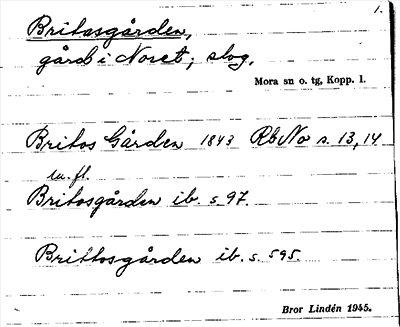 1.
Britasgården,
gård i Noret; slog.
Mora sn o. tg, Kopp. l.
Britos Gården 1843 Rb No s. 13, 14
m. fl.
Britosgården ib. s. 97.
Brittosgården ib. s. 595.
Bror Lindén 1945.